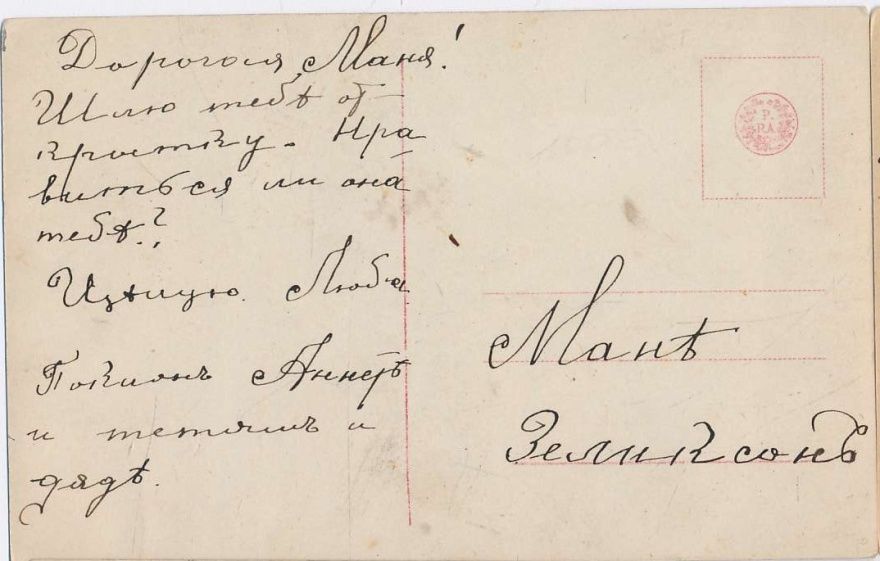 Дорогая Маня!
Шлю тебѣ от-
крытку. Нра
виться ли она
тебѣ?
Цѣлую. Люба
Поклонъ Аннетѣ
и тетямъ и
дядѣ.
P.
R.A.
Манѣ
Зеликсонъ